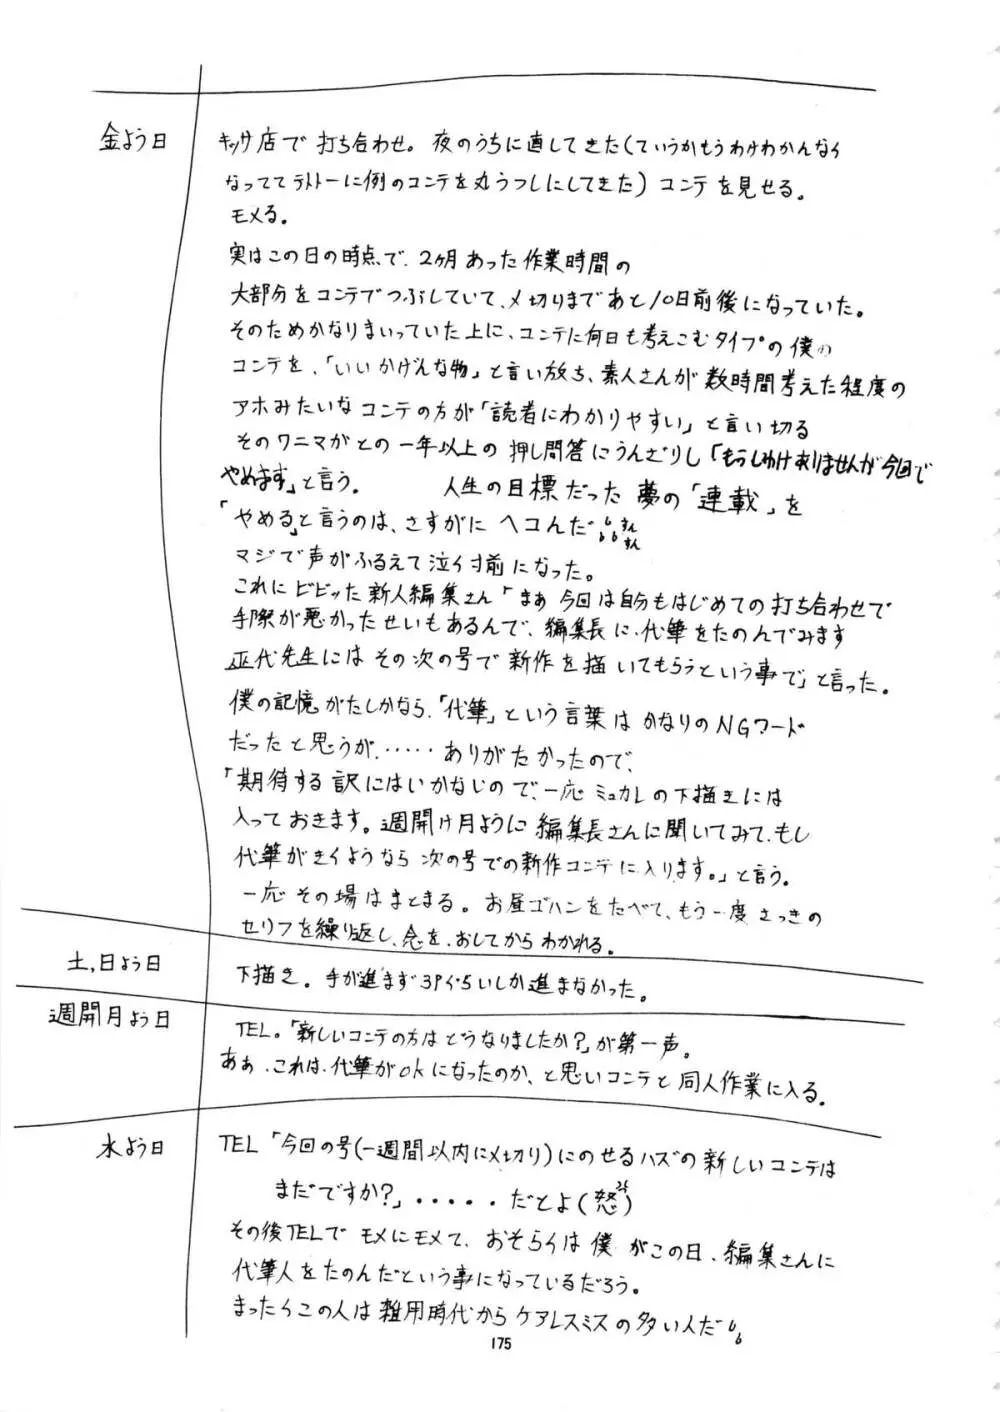 金よう日
キッサ店で打ち合わせ。夜のうちに直してきた(ていうかもうわけわかんなく
なっててテキトーに例のコンテを丸うつしにしてきた)コンテを見せる。
モメる。
実はこの日の時点で、2ヶ月あった作業時間の
大部分をコンテでつぶしていて、〆切りまであと10日前後になっていた。
そのためかなりまいっていた上に、コンテに何日も考えこむタイプの僕の
コンテを、「いいかげんな物」と言い放ち、素人さんが数時間考えた程度の
アホみたいなコンテの方が「読者にわかりやすい」と言い切る
そのワニマガとの一年以上の押し問答にうんざりし「もうしわけありませんが今回で
やめます」と言う。 人生の目標だった夢の「連載」を
「やめる」と言うのは、さすがにヘコんだ
マジで声がふるえて泣く寸前になった。
これにビビッた新人編集さん「まぁ今回は自分もはじめての打ち合わせで
手際が悪かったせいもあるんで、編集長に、代筆をたのんでみます
先生にはその次の号で新作を描いてもらうという事で」と言った。
僕の記憶がたしかなら、「代筆」という言葉はかなりのNGワード
だったと思うが、・・・・・ありがたかったので、
「期待する訳にはいかないので、一応ミュカレの下描きには
入っておきます。週開け月ように編集長さんに聞いてみて、もし
代筆がきくようなら次の号での新作コンテに入ります。」と言う。
一応その場はまとまる。お昼ゴハンをたべて、もう一度さっきの
セリフを繰り返し、念を、おしてからわかれる。
土,日よう日
下描き。手が進まず3Pぐらいしか進まなかった。
週開月よう日
TEL。「新しいコンテの方はどうなりましたか?」が第一声。
あぁ、これは、代筆がokになったのか、と思いコンテと同人作業に入る。
水よう日
TEL「今回の号(一週間以内に〆切り)にのせるハズの新しいコンテは
まだですか?」・・・・・だとよ(怒)
その後TELでモメにモメて、おそらくは僕がこの日、編集さんに
代筆人をたのんだという事になっているだろう。
まったくこの人は雑用時代からケアレスミスの多い人だ
175